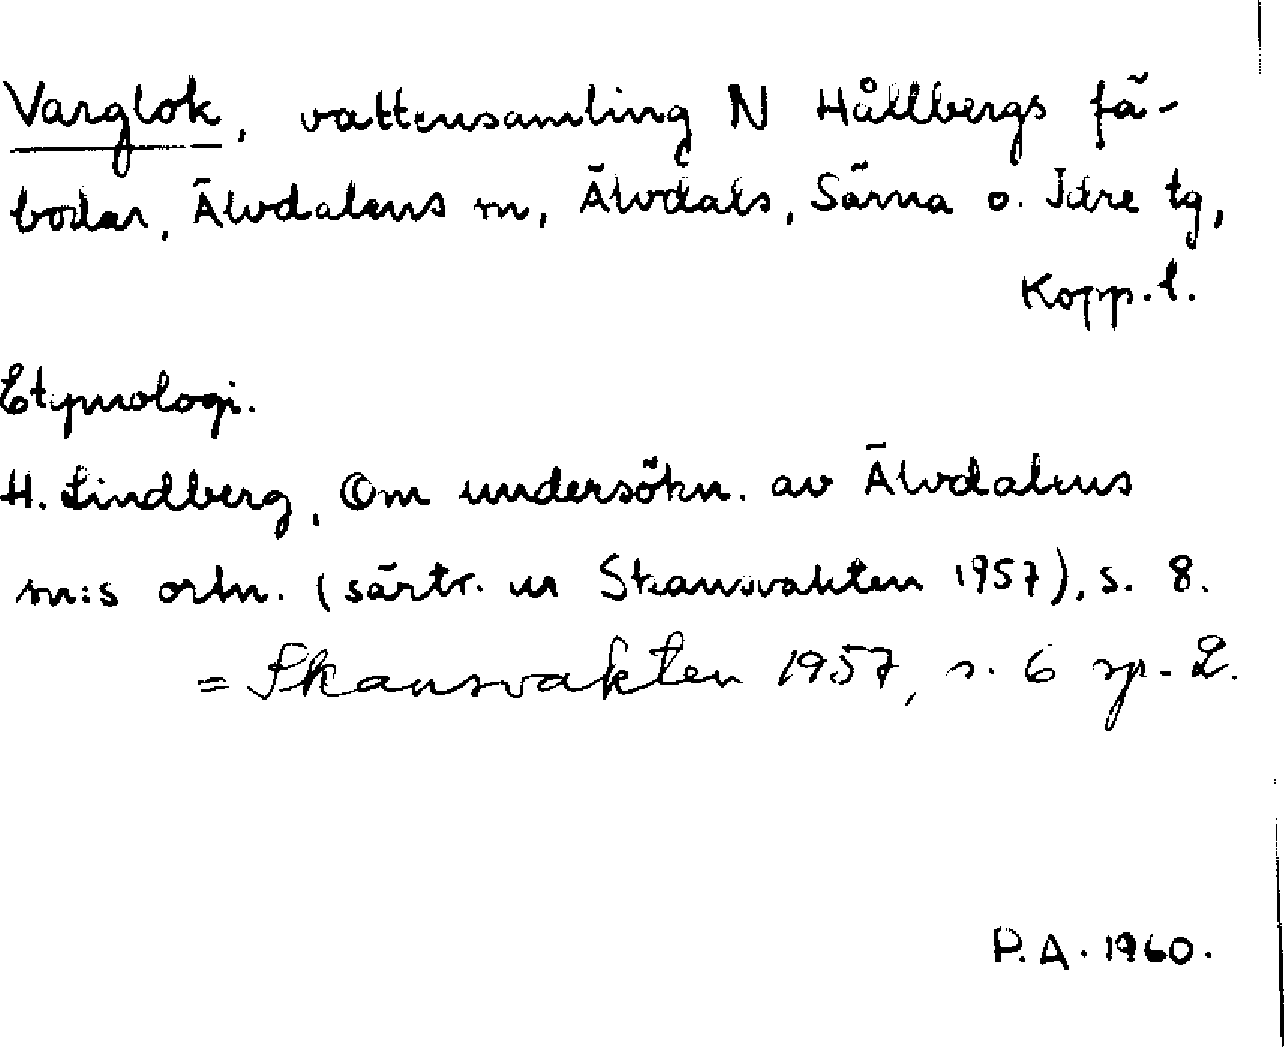 Varglok, vattensamling N Hållbergs fä-
bodar, Älvdalens sn, Älvdals, Särna o. Idre tg,
Kopp. l.
Etymologi.
H. Lindberg, Om undersökn. av Älvdalens
sn:s ortn. (särtr. ur Skansvakten 1957), s. 8.
= Skansvakten 1957, s. 6 sp. 2.
P. A. 1960.